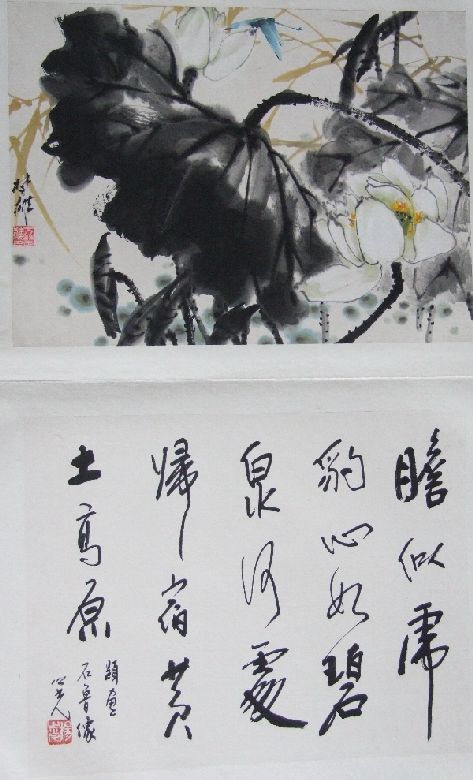 膽似虎
豹心如碧
泉何處
歸宿黄
土高原
題畫
石魯像